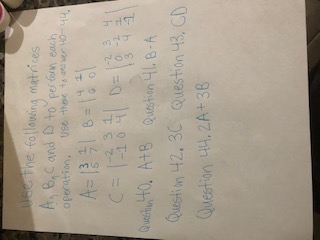 Use the following matrices
A, B, C and D to perform each
operation. Use these to answer 40-44.
A = |3 1| B = |4 1|
|5 7| |6 0|
C = |-2 3 1| D = |-2 3 4|
|-1 0 4| |0 -2 1|
|3 4 -1|
Question 40. A+B Question 41. B-A
Question 42. 3C Question 43. CD
Question 44. 2A+3B